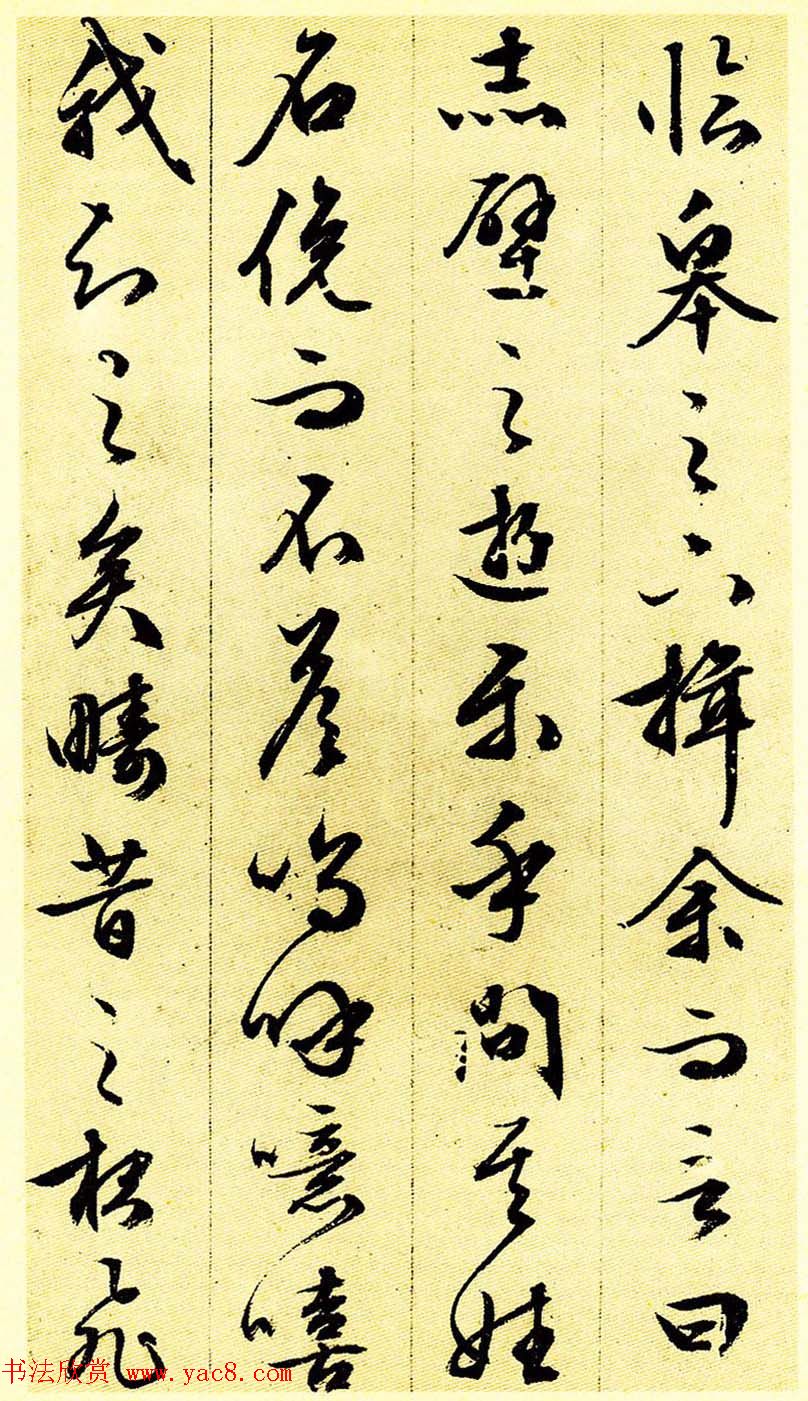 臨皋之下揖余而言曰
赤壁之遊樂乎問其姓
名俛而不答嗚呼噫嘻
我知之矣疇昔之夜飛
书法欣赏 www.yac8.com